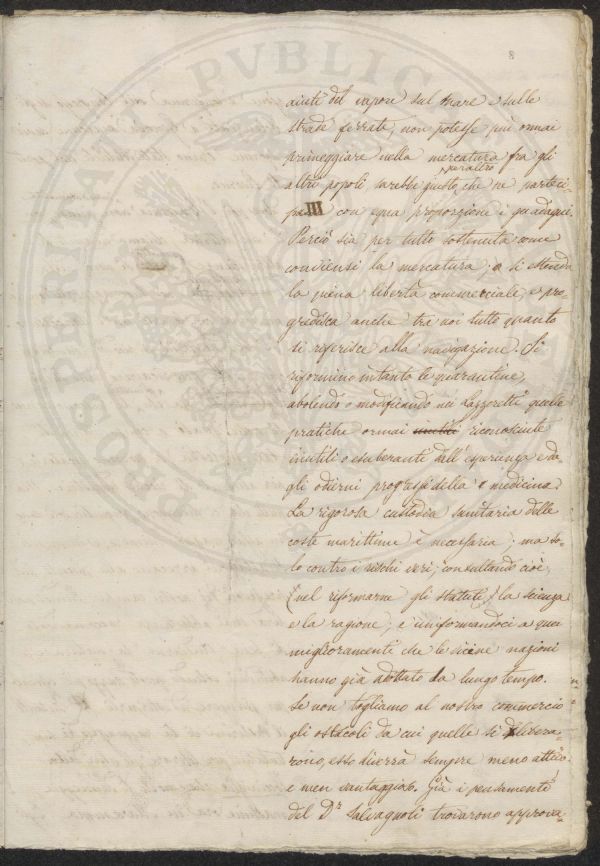 8
aiuti del vapore sul mare e sulle
strade ferrate, non potesse più omai
primeggiare nella mercatura fra gli
peraltro
altri popoli sarebbe giusto, che ne parteci-
con equa proporzione i guadagni.
Perciò sia per tutto sostenuta come
conviensi la mercatura; e si estenda
la piena libertà commerciale, e pro-
gredisca anche tra noi tutto quanto
si riferisce alla navigazione. Si
riformino intanto le quarantine,
abolendo o modificando nei Lazzeretti quelle
pratiche ormai inutili riconosciute
inutili o esuberanti dall'esperienza e da
gli odierni progressi della medicina.
La rigorosa custodia sanitaria delle
coste marittime è necessaria; ma so-
lo contro i rischi veri; consultando cioè
(nel riformarne gli statuti) la scienza
e la ragione; e uniformandoci a quei
miglioramenti che le vicine nazioni
hanno già adottato da lungo tempo.
Se non togliamo al nostro commercio
gli ostacoli da cui quelle si libera-
rono, esso diverrà sempre meno attivo
e men vantaggioso. Già i pensamenti
del Dr. Salvagnoli trovarono approva-
PROSPERITATI PUBLIC